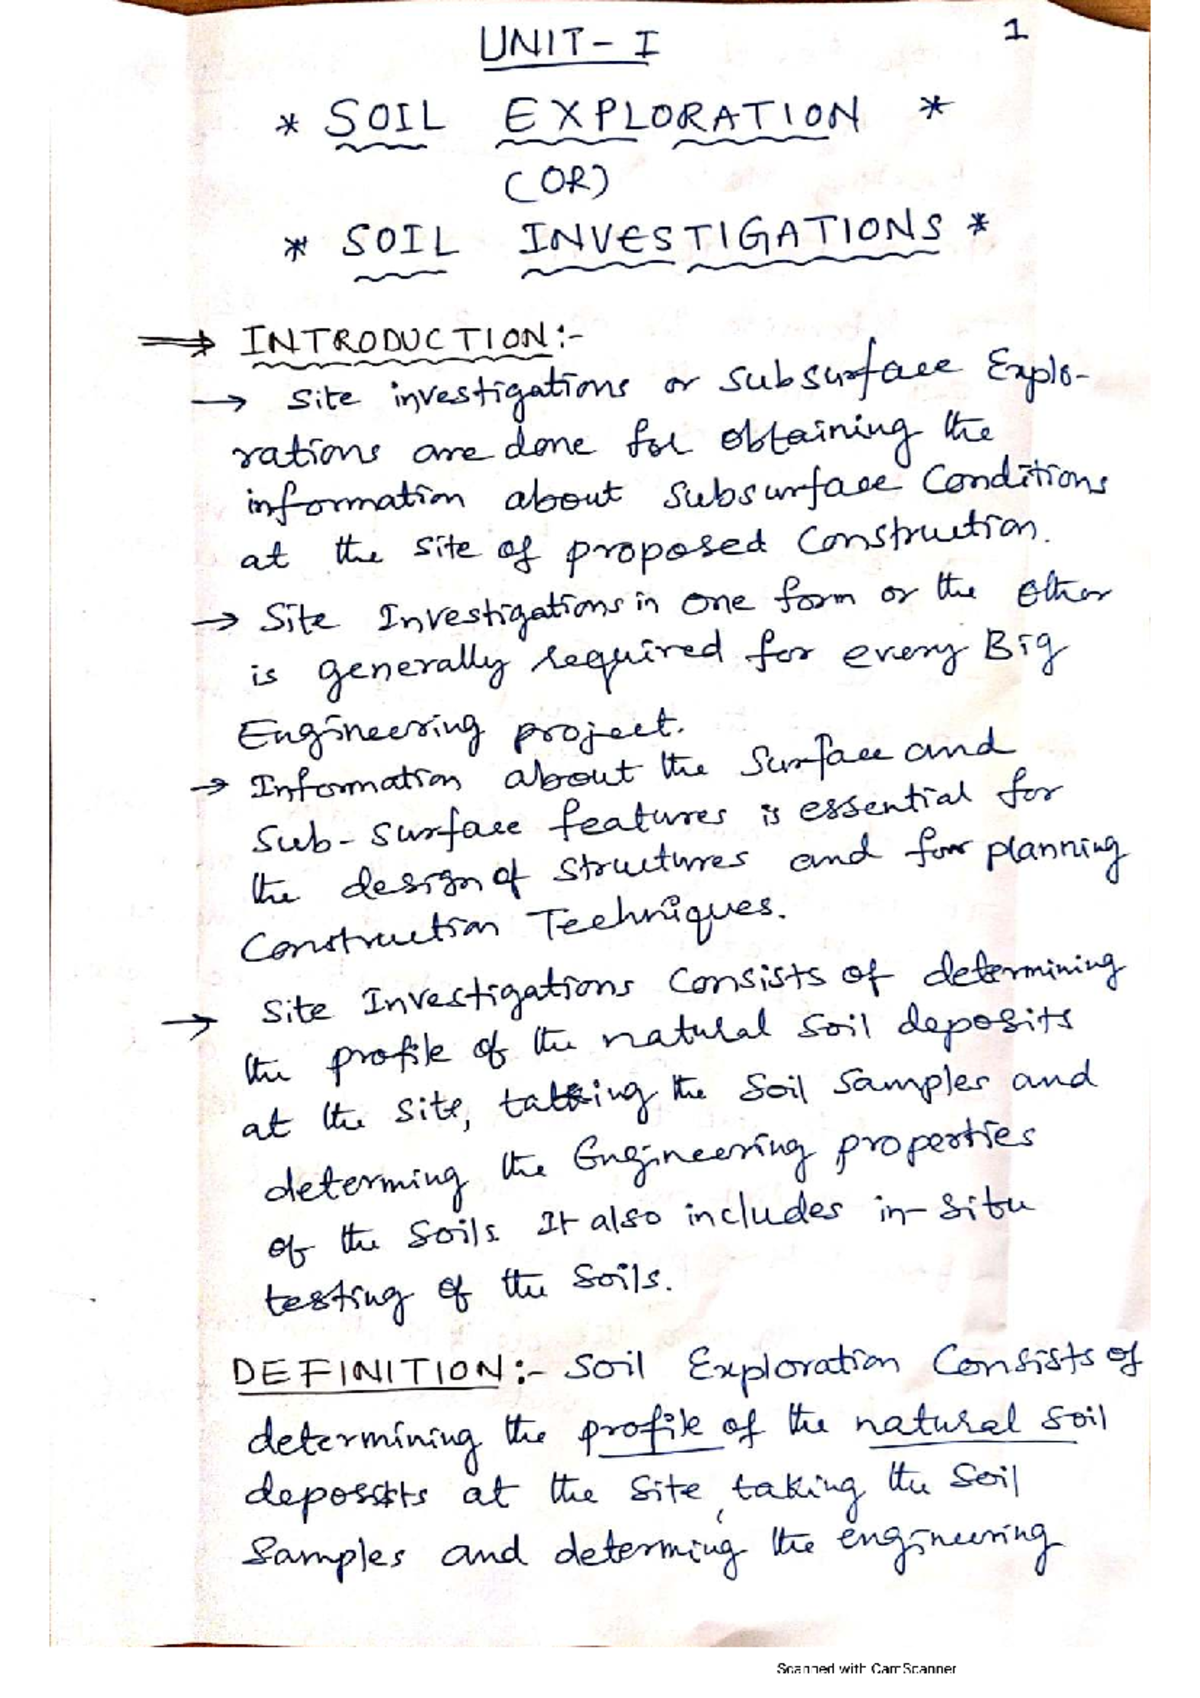 UNIT-I
1
* SOIL EXPLORATION *
(OR)
* SOIL INVESTIGATIONS *
⇒ INTRODUCTION:-
→ Site investigations or subsurface Explo-
rations are done for obtaining the
information about subsurface Conditions
at the site of proposed Construction.
→ Site Investigations in one form or the other
is generally required for every Big
Engineering project.
→ Information about the surface and
sub-surface features is essential for
the design of structures and for planning
Construction Techniques.
→ Site Investigations Consists of determining
the profile of the natural soil deposits
at the site, taking the soil samples and
determing the Engineering properties
of the soils. It also includes in-situ
testing of the soils.
DEFINITION:- Soil Exploration Consists of
determining the profile of the natural soil
deposits at the site, taking the soil
samples and determing the engineering
Scanned with CamScanner